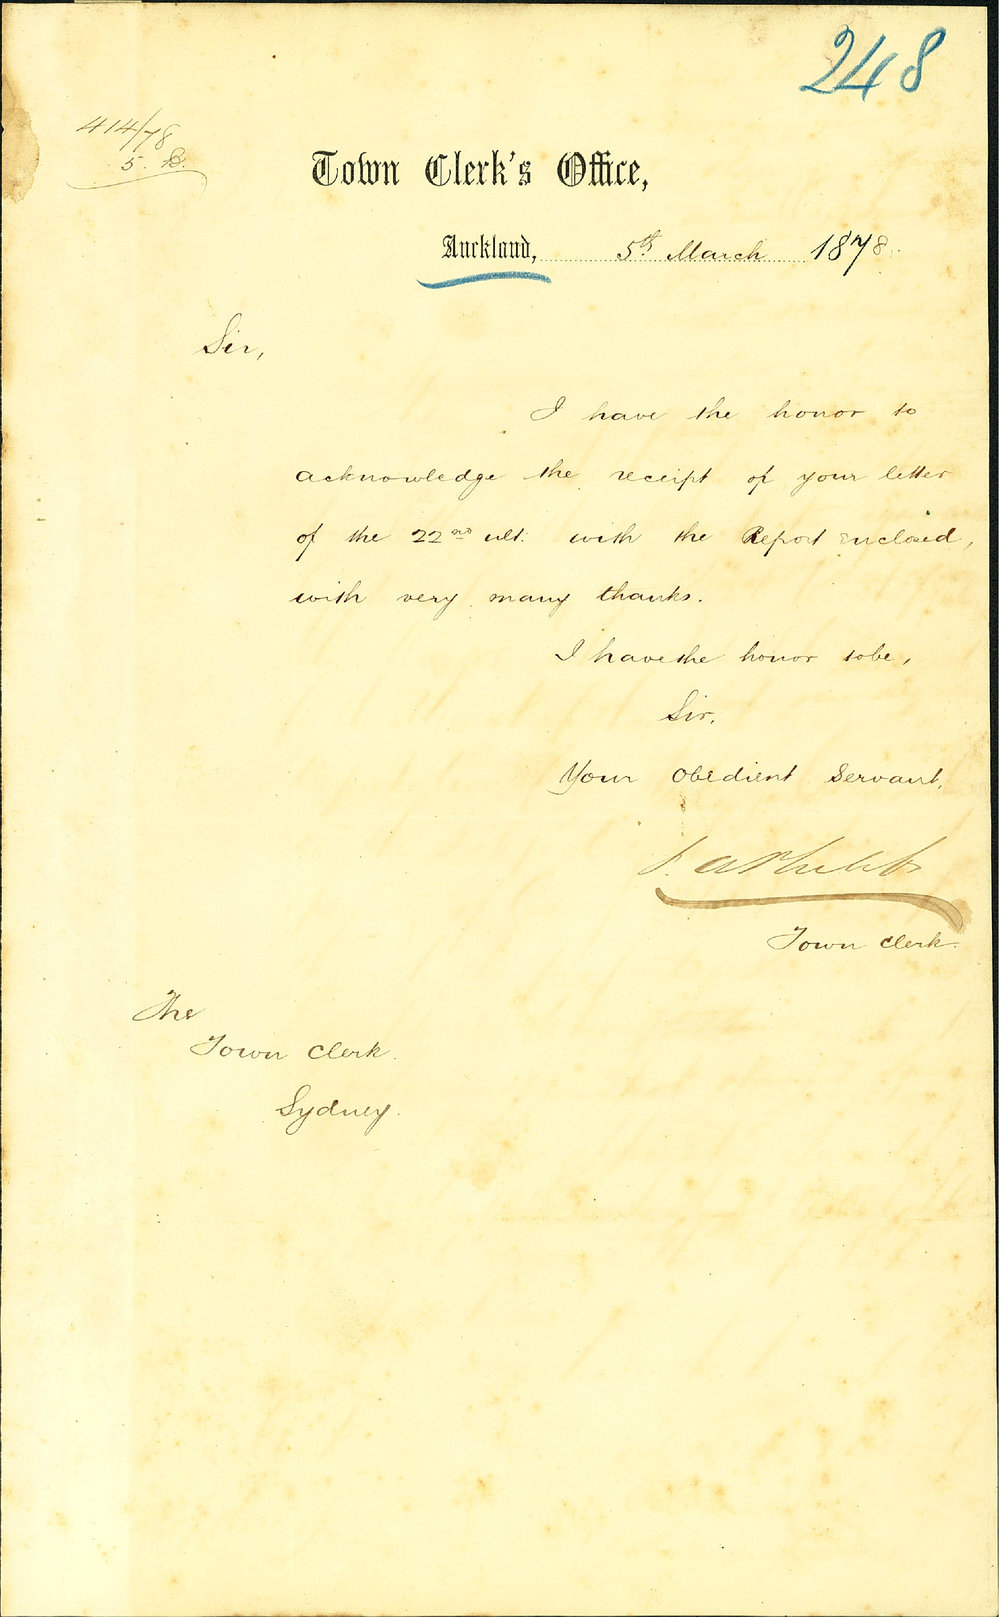 248
414/78
5. B.
Town Clerk's Office,
Auckland, 5th March 1878.
Sir,
I have the honor to
acknowledge the receipt of your letter
of the 22nd ult. with the Report enclosed,
with very many thanks.
I have the honor to be,
Sir,
Your Obedient Servant,
Town Clerk.
The
Town Clerk.
Sydney.